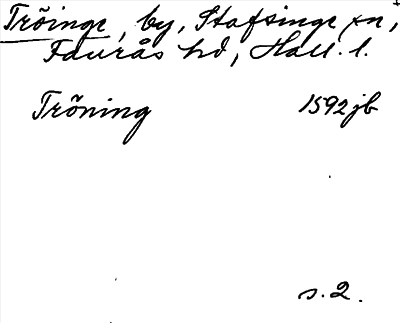 Tröinge, by, Stafsinge sn,
Faurås hd, Hall. l.
Tröning 1592 jb
s. 2.